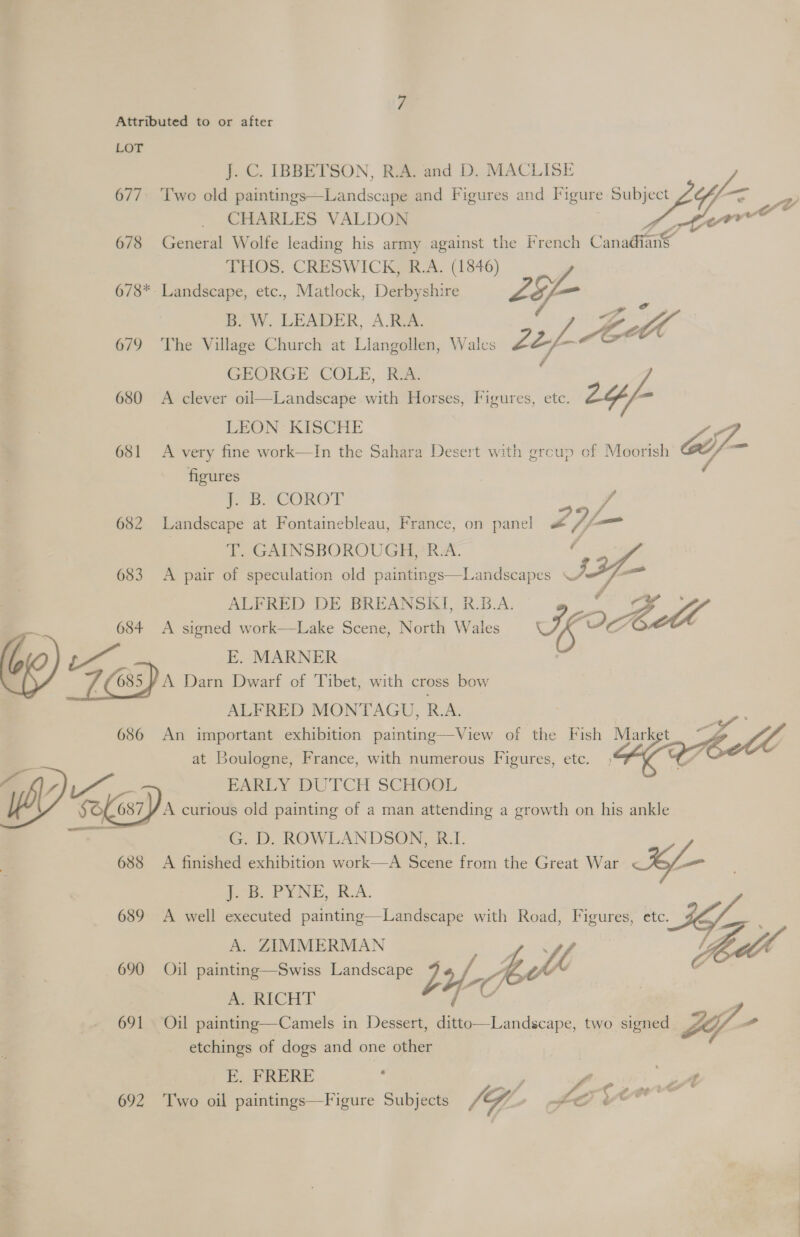 7
Attributed to or after
LOT
J. C. IBBETSON, R.A. and D. MACLISE
677 Two old paintings—Landscape and Figures and Figure Subject 24/-
CHARLES VALDON
678 General Wolfe leading his army against the French Canadians
THOS. CRESWICK, R.A. (1846)
678* Landscape, etc., Matlock, Derbyshire 25/-
B. W. LEADER, A.R.A.
679 The Village Church at Llangollen, Wales 22/- Bell
GEORGE COLE, R.A.
680 A clever oil—Landscape with Horses, Figures, etc. 24/-
LEON KISCHE
681 A very fine work—In the Sahara Desert with group of Moorish
figures
J. B. COROT
682 Landscape at Fontainebleau, France, on panel 29/-
T. GAINSBOROUGH, R.A.
683 A pair of speculation old paintings—Landscapes 32/-
ALFRED DE BREANSKI, R.B.A.
684 A signed work—Lake Scene, North Wales Bell
E. MARNER
685 A Darn Dwarf of Tibet, with cross bow
ALFRED MONTAGU, R.A.
686 An important exhibition painting—View of the Fish Market
at Boulogne, France, with numerous Figures, etc. Bell
EARLY DUTCH SCHOOL
687 A curious old painting of a man attending a growth on his ankle
G. D. ROWLANDSON, R.I.
688 A finished exhibition work—A Scene from the Great War
J. B. PYNE, R.A.
689 A well executed painting—Landscape with Road, Figures, etc.
A. ZIMMERMAN Bell
690 Oil painting—Swiss Landscape Bell
A. RICHT
691 Oil painting—Camels in Dessert, ditto—Landscape, two signed
etchings of dogs and one other
E. FRERE
692 Two oil paintings—Figure Subjects